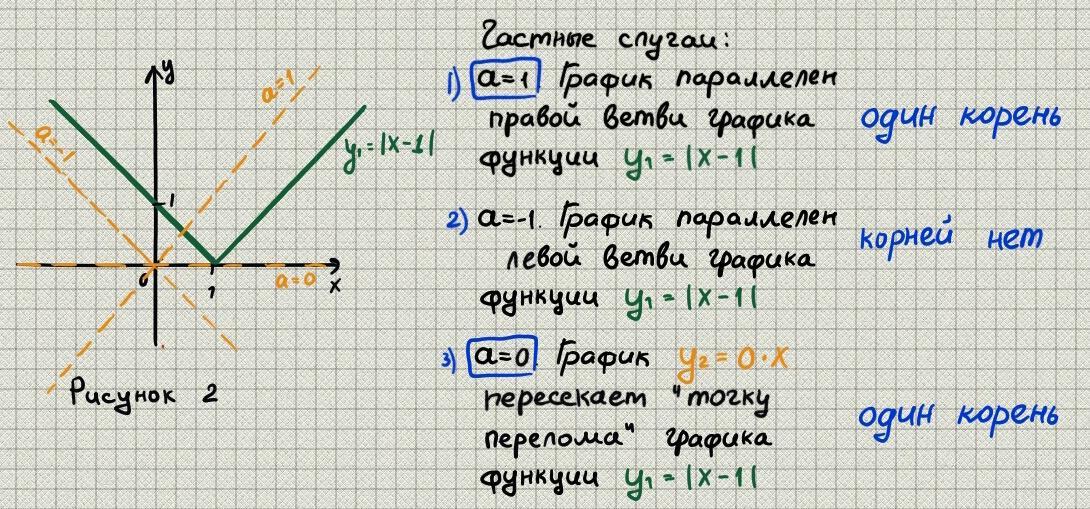 y
a=1
a=-1
y₁=|x-1|
1
0
1
a=0
x
Рисунок 2
Частные случаи:
1) a=1 График параллелен
правой ветви графика
функции y₁=|x-1|
один корень
2) a=-1. График параллелен
левой ветви графика
функции y₁=|x-1|
корней нет
3) a=0 График y₂=0·x
пересекает "точку
перелома" графика
функции y₁=|x-1|
один корень